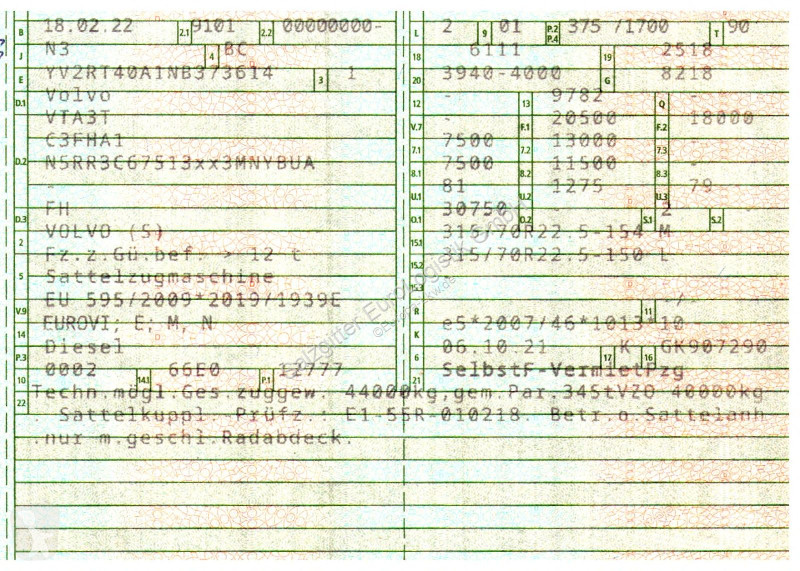 B 18.02.22 2.1 9101 2.2 00000000-
J N3 4 BC
E YV2RT40A1NB373614 3 1
D.1 Volvo
VTA3T
C3FHA1
D.2 N5RR3C67513xx3MNYBUA
-
D.3 FH
2 VOLVO (S)
Fz.z.Gü.bef. > 12 t
5 Sattelzugmaschine
V.9 EU 595/2009*2019/1939E
14 EUROVI; E; M, N
P.3 Diesel
10 0002 14.1 66E0 P.1 12777
L 2 9 01 P.2 P.4 375 /1700 T 90
18 6111 19 2518
20 3940-4000 G 8218
12 - 13 9782 Q -
V.7 - F.1 20500 F.2 18000
7.1 7500 7.2 13000 7.3 -
8.1 7500 8.2 11500 8.3 -
U.1 81 U.2 1275 U.3 79
O.1 30750 O.2 - S.1 2 S.2
15.1 315/70R22.5-154 M
15.2 315/70R22.5-150 L
15.3 -
R - 11 -/-
K e5*2007/46*1013*10
6 06.10.21 17 K 16 GK907290
21 SelbstF-VermietPzg
22 Techn.mögl.Ges.zuggew. 44000kg,gem.Par.34StVZO 40000kg
. Sattelkuppl.-Prüfz.: E1-55R-010218. Betr.o.Sattelanh
.nur m.geschl.Radabdeck.
Salzgitter Eurologistik GmbH